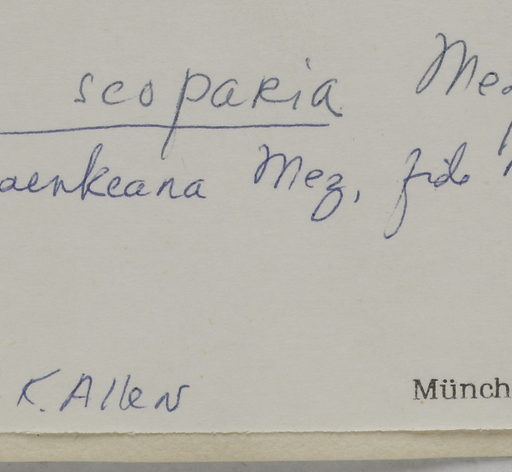 scoparia Mez
aenkeana Mez, fide
K. Allen
Münch